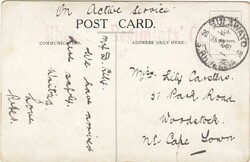 On Active Service
POST CARD.
COMMUNICATION.
ADDRESS ONLY HERE.
BULAWAYO
My D. Lily
We have arrived
here safely.
Love
Miss Lily Carsters.
57 Park Road
Woodstock.
Nr Cape Town